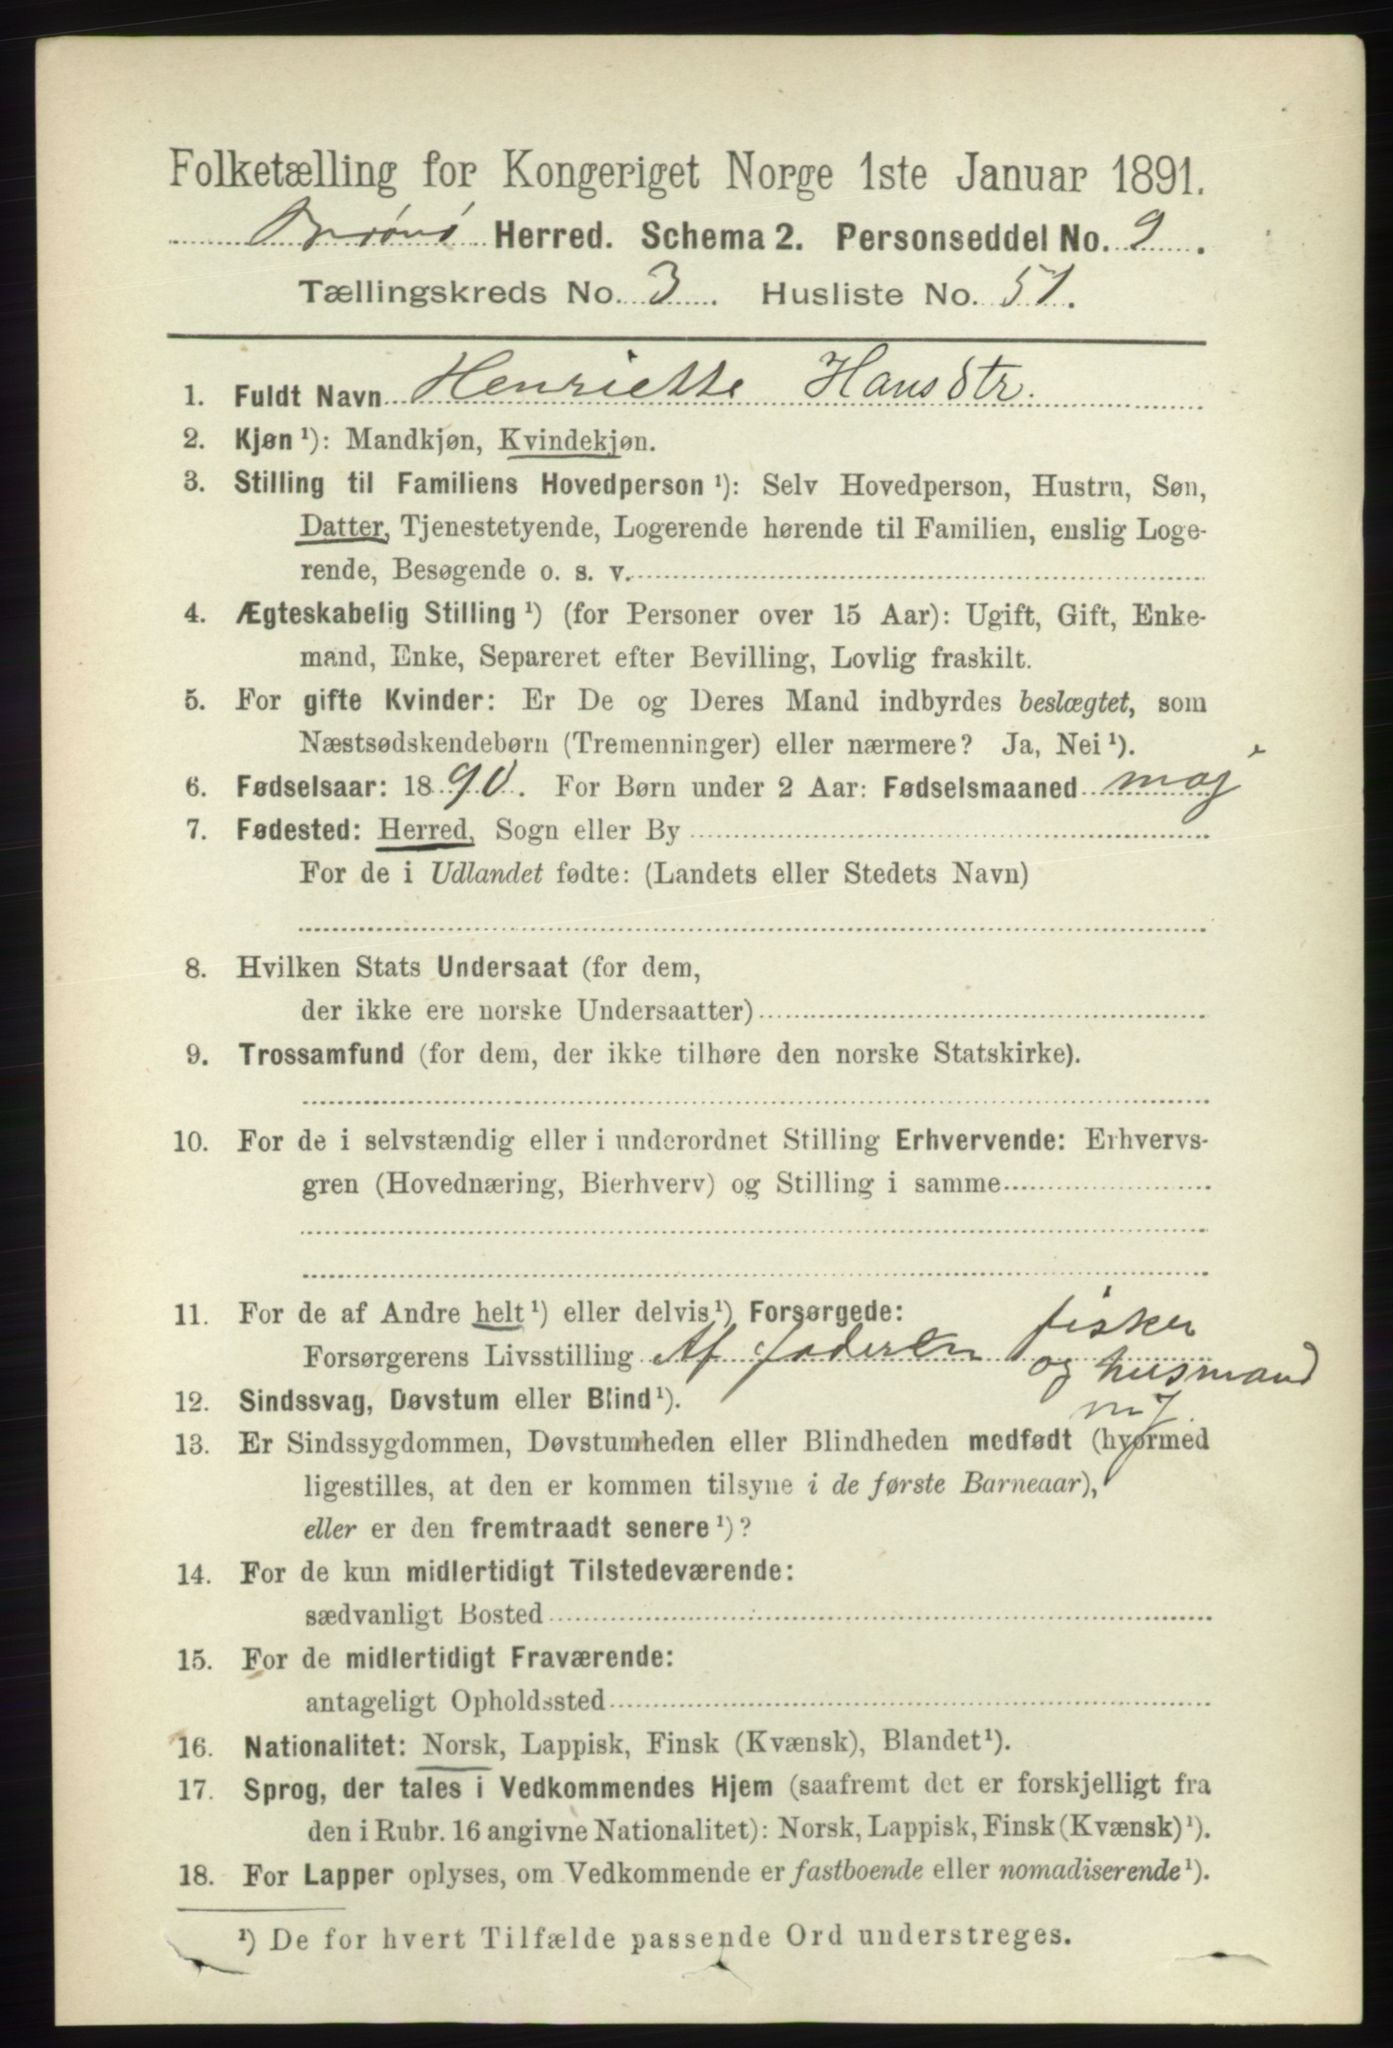 Folketælling for Kongeriget Norge 1ste Januar 1891.
Brønø Herred. Schema 2. Personseddel No. 9.
Tællingskreds No. 3. Husliste No. 51.
1. Fuldt Navn Henriette Hansdtr.
2. Kjøn ¹): Mandkjøn, Kvindekjøn.
3. Stilling til Familiens Hovedperson ¹): Selv Hovedperson, Hustru, Søn,
Datter, Tjenestetyende, Logerende hørende til Familien, enslig Loge-
rende, Besøgende o. s. v.
4. Ægteskabelig Stilling ¹) (for Personer over 15 Aar): Ugift, Gift, Enke-
mand, Enke, Separeret efter Bevilling, Lovlig fraskilt.
5. For gifte Kvinder: Er De og Deres Mand indbyrdes beslægtet, som
Næstsødskendebørn (Tremenninger) eller nærmere? Ja, Nei ¹).
6. Fødselsaar: 1890. For Børn under 2 Aar: Fødselsmaaned maj
7. Fødested: Herred, Sogn eller By
For de i Udlandet fødte: (Landets eller Stedets Navn)
8. Hvilken Stats Undersaat (for dem,
der ikke ere norske Undersaatter)
9. Trossamfund (for dem, der ikke tilhøre den norske Statskirke).
10. For de i selvstændig eller i underordnet Stilling Erhvervende: Erhvervs-
gren (Hovednæring, Bierhverv) og Stilling i samme
11. For de af Andre helt ¹) eller delvis ¹) Forsørgede: fisker
Forsørgerens Livsstilling Af faderen og husmand
12. Sindssvag, Døvstum eller Blind ¹). m J.
13. Er Sindssygdommen, Døvstumheden eller Blindheden medfødt (hvormed
ligestilles, at den er kommen tilsyne i de første Barneaar),
eller er den fremtraadt senere ¹)?
14. For de kun midlertidigt Tilstedeværende:
sædvanligt Bosted
15. For de midlertidigt Fraværende:
antageligt Opholdssted
16. Nationalitet: Norsk, Lappisk, Finsk (Kvænsk), Blandet ¹).
17. Sprog, der tales i Vedkommendes Hjem (saafremt det er forskjelligt fra
den i Rubr. 16 angivne Nationalitet): Norsk, Lappisk, Finsk (Kvænsk) ¹).
18. For Lapper oplyses, om Vedkommende er fastboende eller nomadiserende ¹).
¹) De for hvert Tilfælde passende Ord understreges.